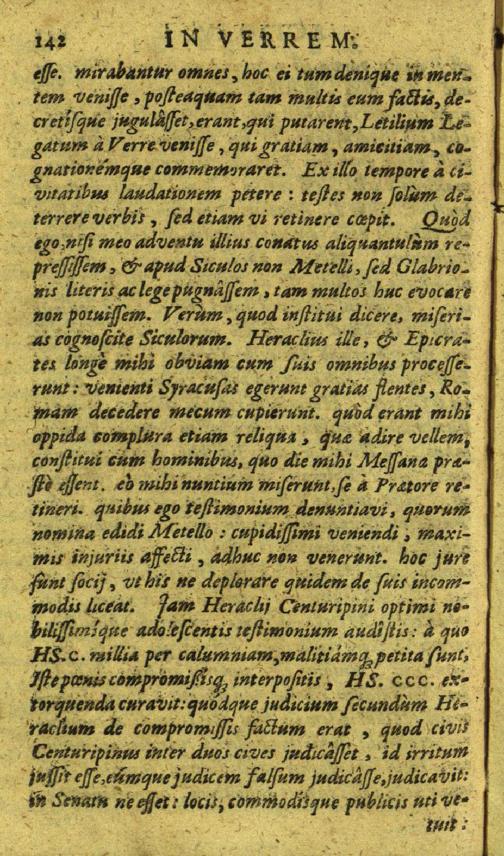 142 IN VERREM.
esse. mirabantur omnes, hoc ei tum denique in men-
tem venisse, posteaquam tam multis eum factis, de-
cretisque jugulâsset, erant, qui putarent, Letilium Le-
gatum à Verre venisse, qui gratiam, amicitiam, co-
gnationémque commemoraret. Ex illo tempore à ci-
vitatibus laudationem petere : testes non solùm de-
terrere verbis, sed etiam vi retinere cœpit. Quòd
ego, nisi meo adventu illius conatus aliquantulùm re-
pressissem, & apud Siculos non Metelli, sed Glabrio-
nis literis ac lege pugnâssem, tam multos huc evocare
non potuissem. Verùm, quod institui dicere, miseri-
as cognoscite Siculorum. Heraclius ille, & Epicra-
tes longè mihi obviam cum suis omnibus processe-
runt : venienti Syracusas egerunt gratias flentes, Ro-
mam decedere mecum cupierunt. quòd erant mihi
oppida complura etiam reliqua, quæ adire vellem,
constitui cum hominibus, quo die mihi Messana præ-
stò essent. eò mihi nuntium miserunt, se à Prætore re-
tineri. quibus ego testimonium denuntiavi, quorum
nomina edidi Metello : cupidissimi veniendi, maxi-
mis injuriis affecti, adhuc non venerunt. hoc jure
sunt socij, vt his ne deplorare quidem de suis incom-
modis liceat. Jam Heraclij Centuripini optimi no-
bilissimíque adolescentis testimonium audîstis : à quo
HS. C. millia per calumniam, malitiámq; petita sunt,
Iste pœnis compromissisq; interpositis, HS. CCC. ex-
torquenda curavit: quódque judicium secundùm He-
raclium de compromissis factum erat, quod civis
Centuripinus inter duos cives judicâsset, id irritum
jussit esse, eúmque judicem falsum judicâsse, judicavit:
in Senatu ne esset : locis, commodisque publicis uti ve-
tuit :